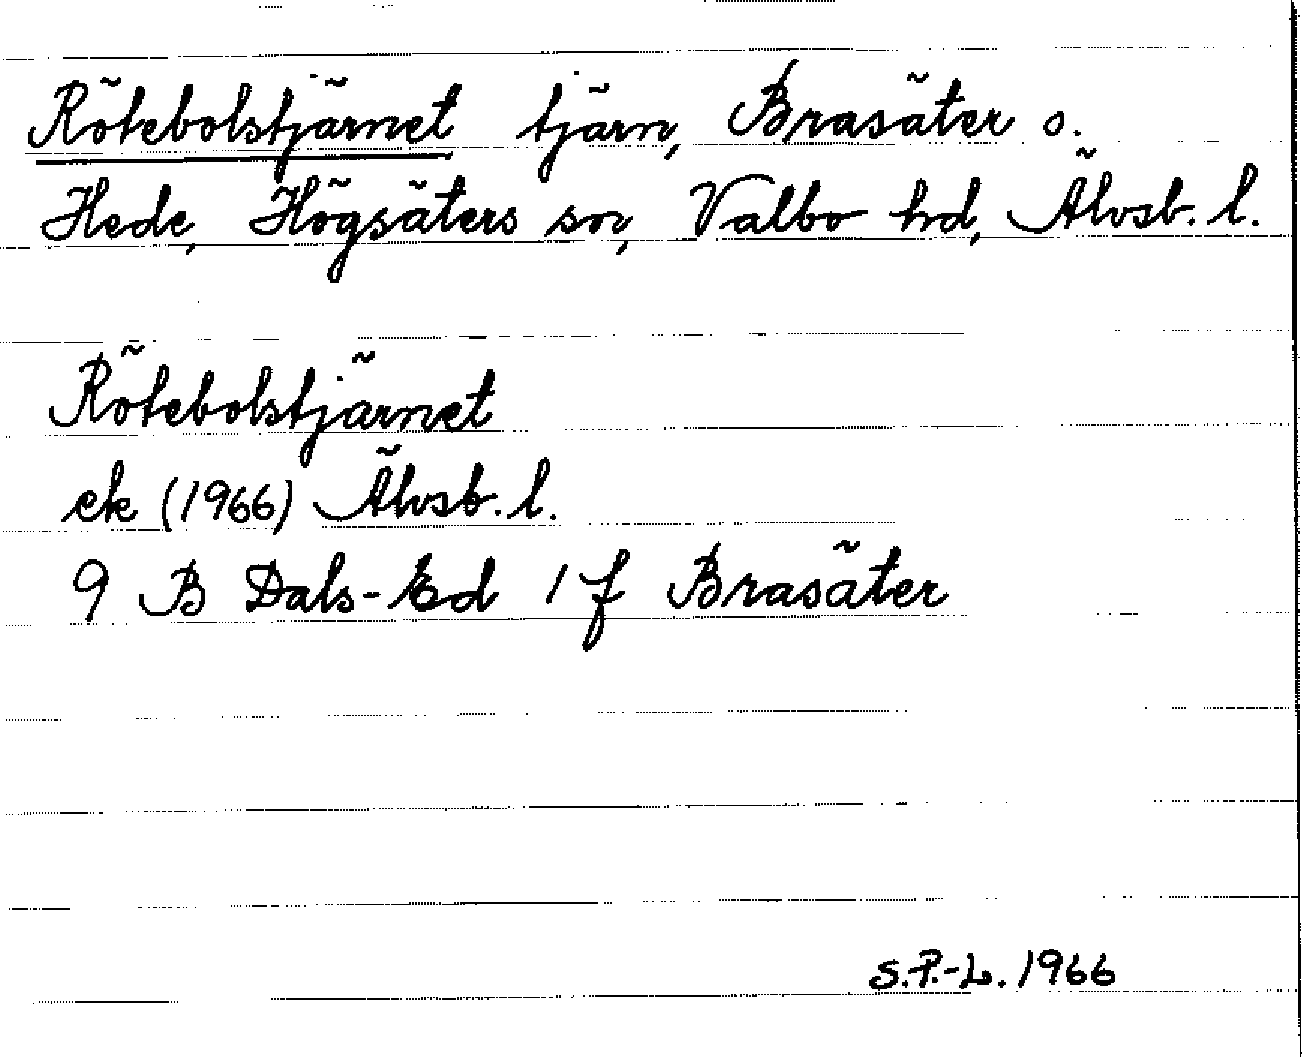 Rötebolstjärnet tjärn, Brasäter o.
Hede, Högsäters sn, Valbo hd, Älvsb. l.
Rötebolstjärnet
ek (1966) Älvsb. l.
9 B Dals-Ed 1 f Brasäter
S.P.-L. 1966